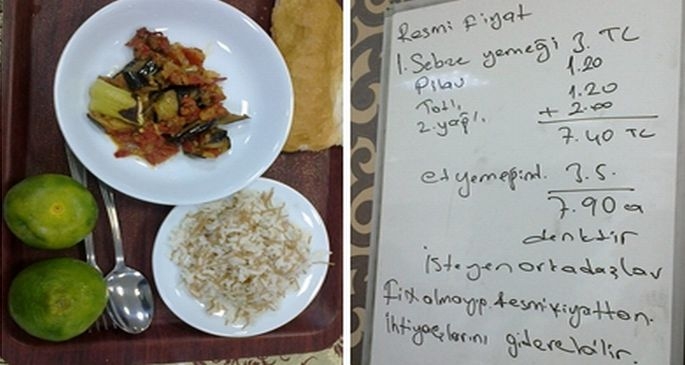 Resmi Fiyat
1. Sebze yemeği 3. TC
1.20
Pilav 1.20
Tatlı + 2.00
z.yağlı. 7.40 TC
et yemeğind. 3.5.
7.90 a
denktir
isteyen arkadaşlar
Fix olmayıp Resmi fiyattan.
ihtiyaçlarını giderebilir.